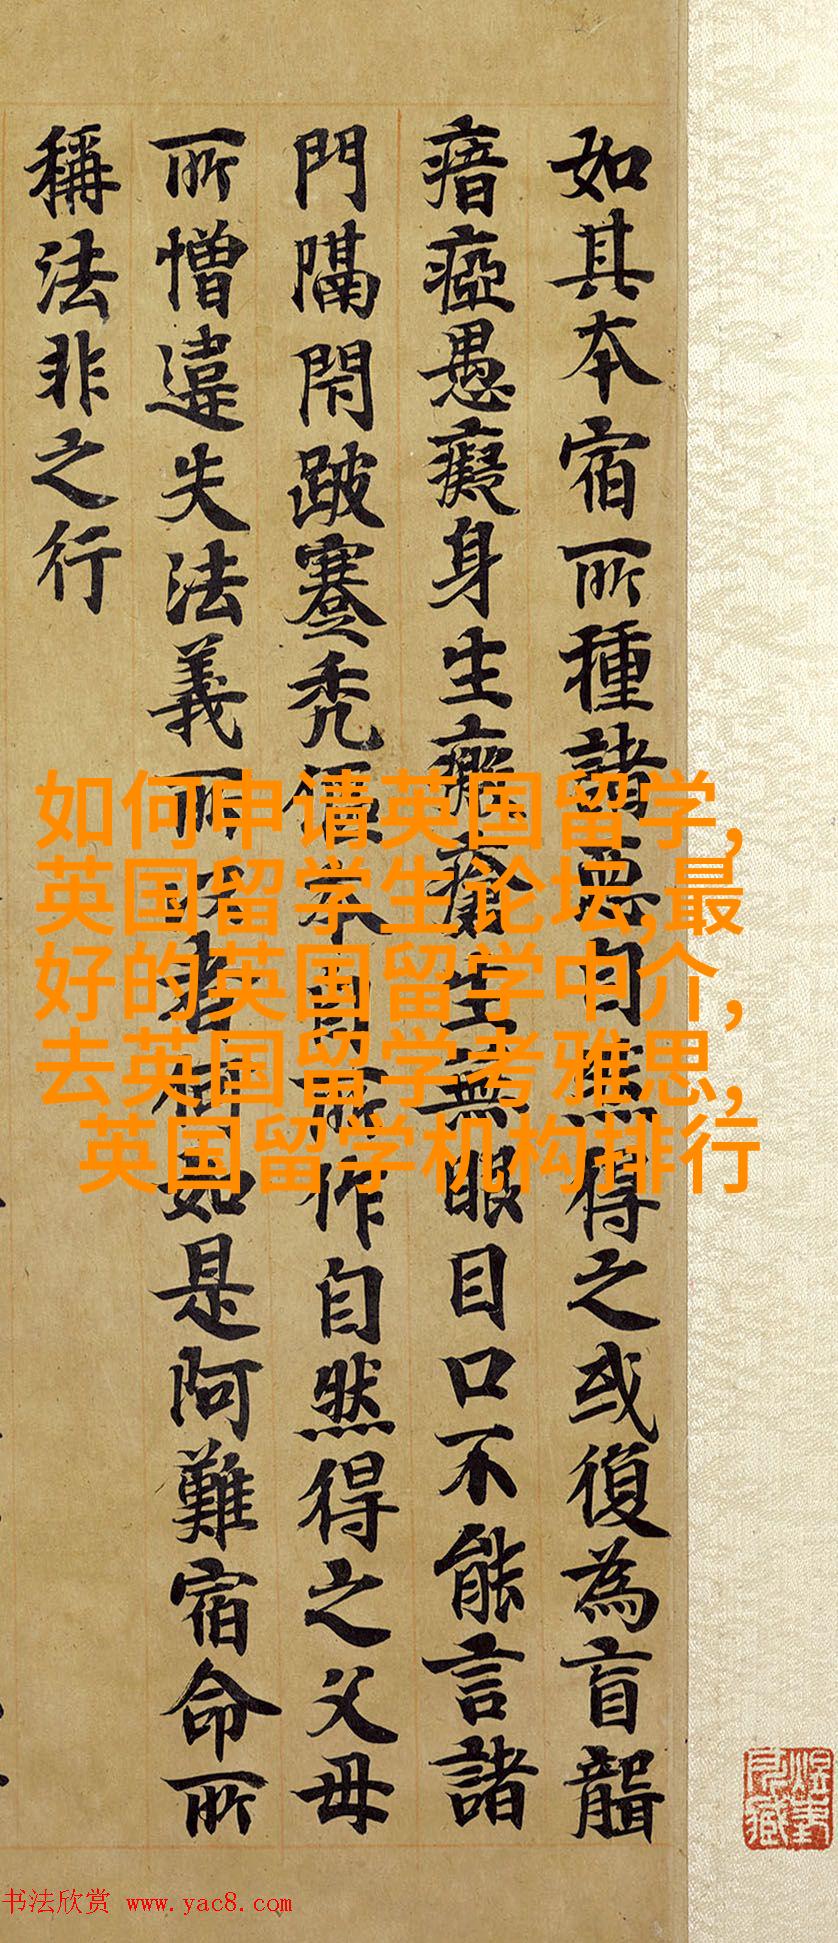 如其本宿所種諸惡自然得之或復為盲聾
瘖瘂愚癡身生癰瘡生無眼目口不能言諸
門隔閇跛蹇禿傴本自所作自然得之父母
所憎違失法義所以者何如是阿難宿命所
稱法非之行
如何申请英国留学,
英国留学生论坛,最
好的英国留学中介,
去英国留学考雅思,
英国留学机构排行
书法欣赏 www.yac8.com